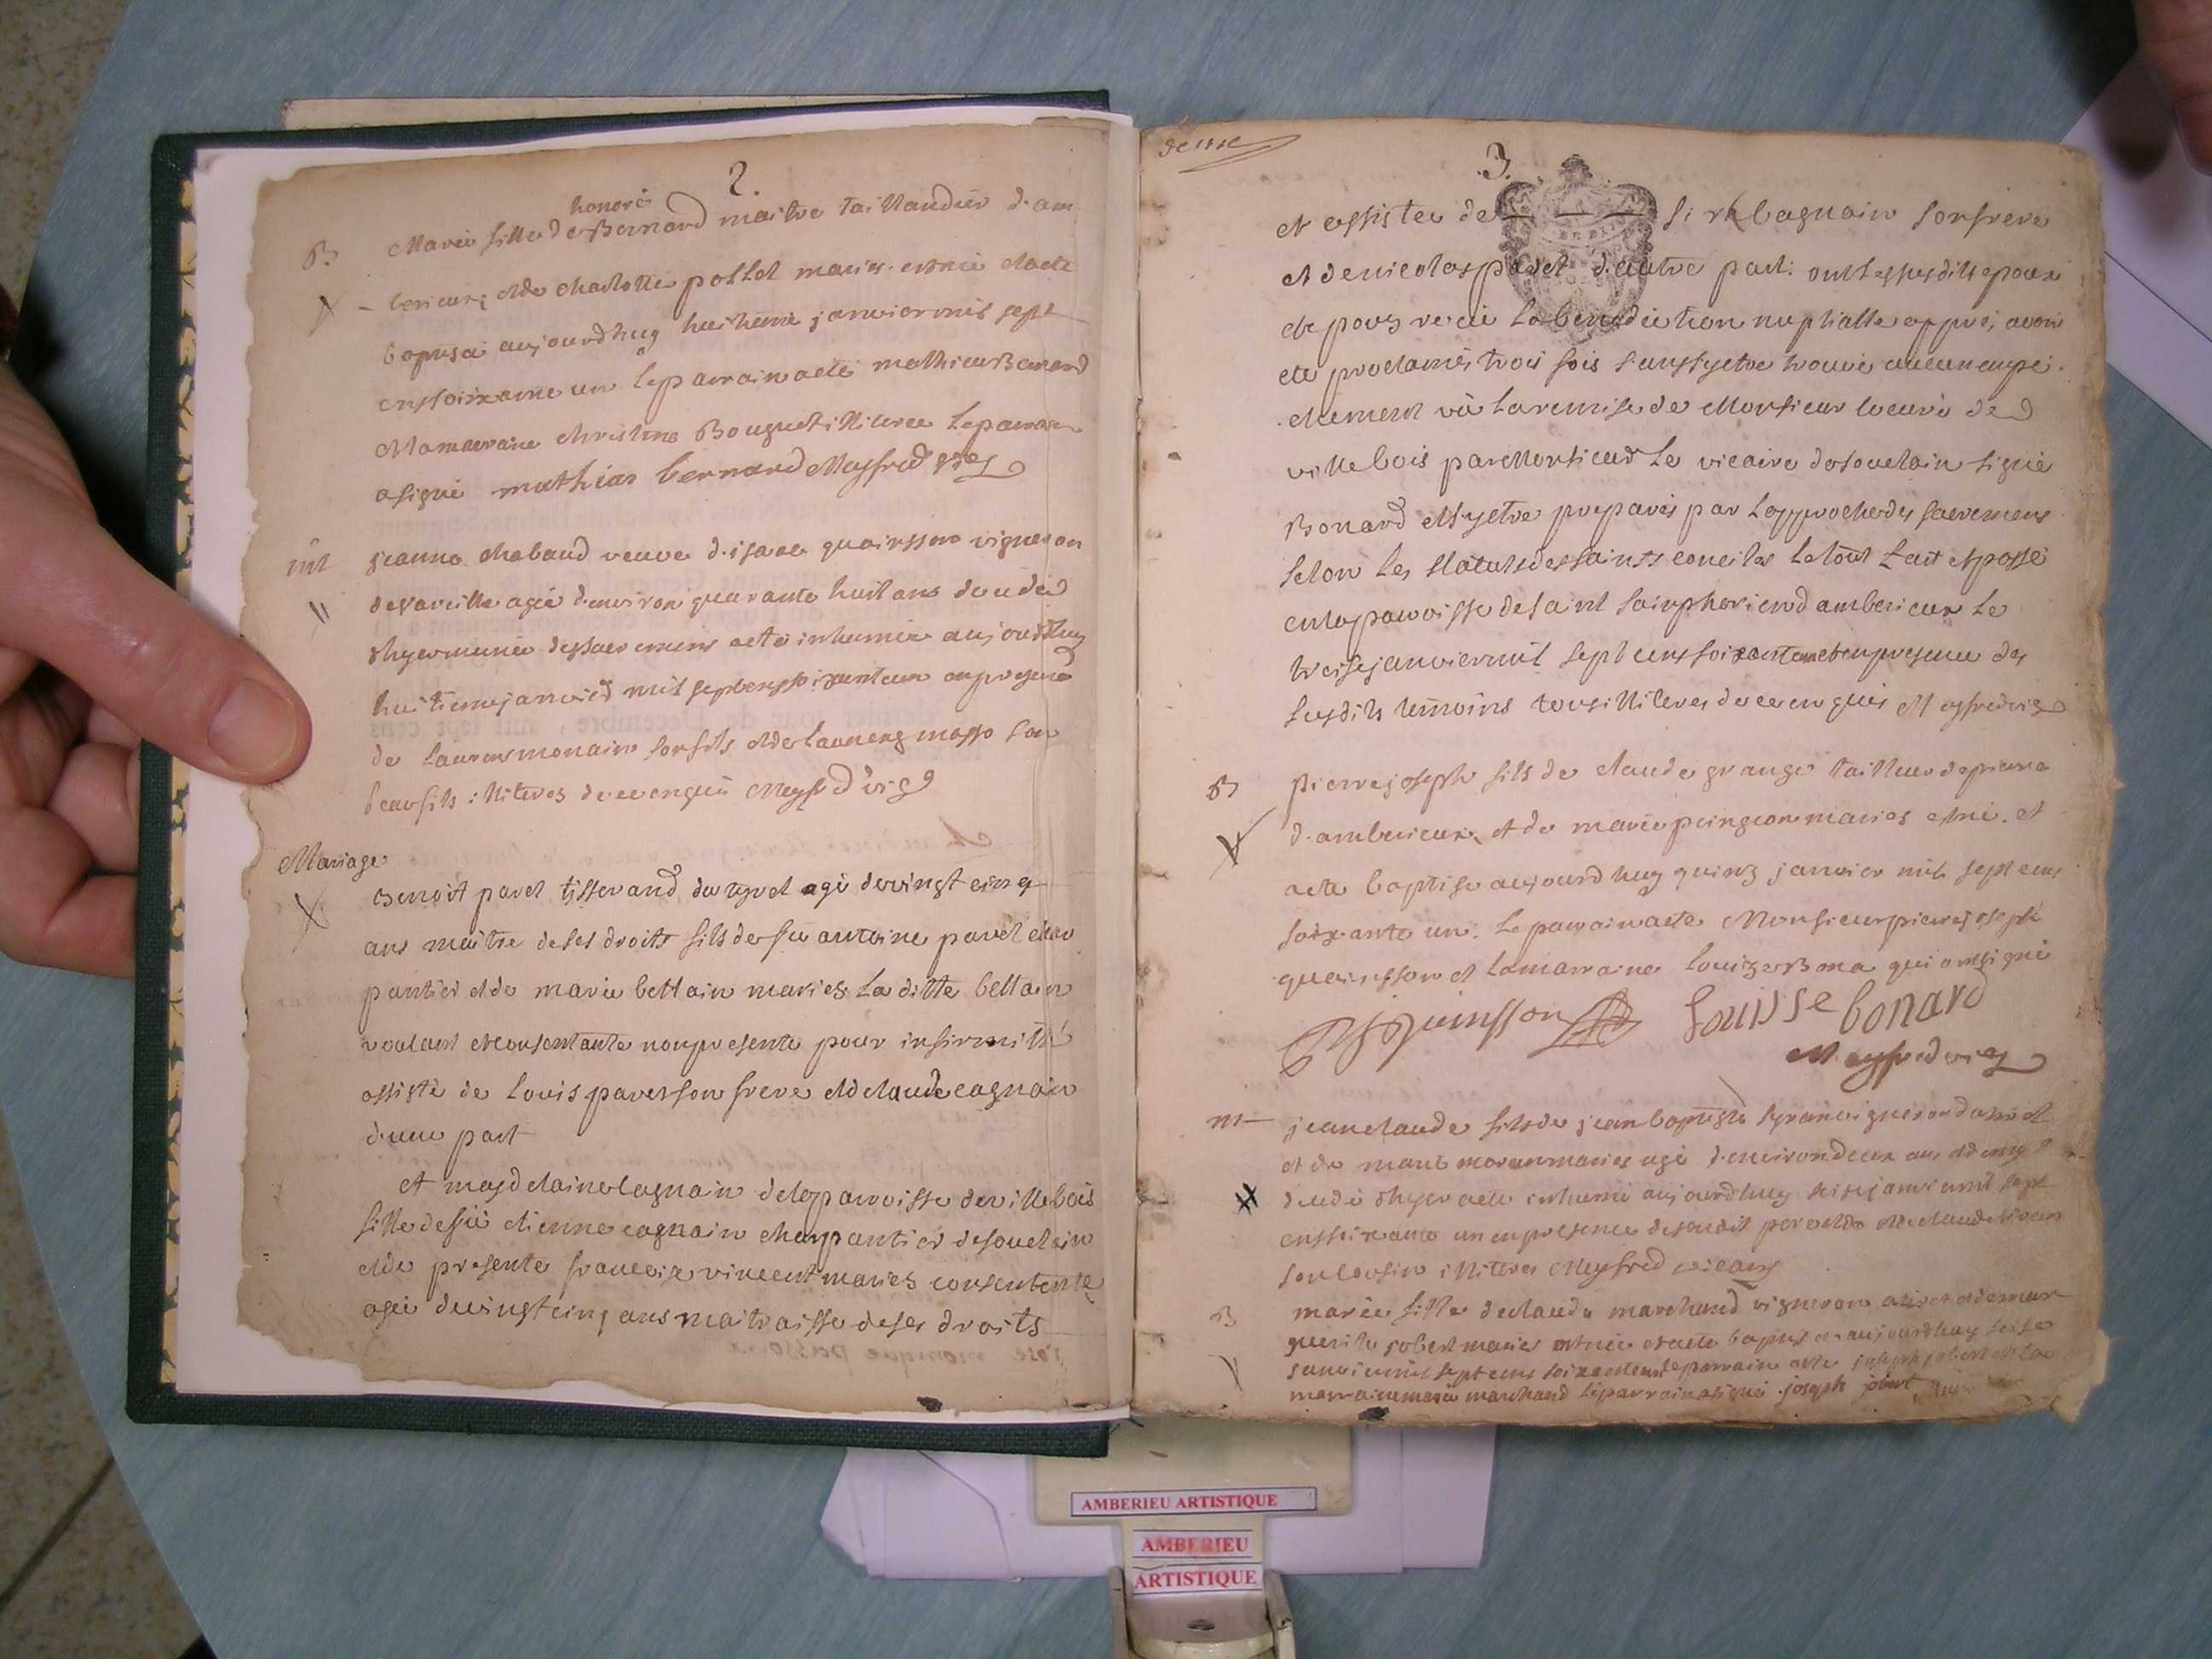 2.
honoré
B Marie fille de Bernard maitre taillandier d'am
berieux et de charlotte pollet maries est née et a été
baptisée aujourdhuy huitieme janvier mil sept
cens soixante un le parrain a eté mathieu Bernard
et la marraine christine Bouguet illiteree le parrain
a signé mathias bernard Meyfred vic
mt jeanne chabaud veuve d'isaac quainsson vigneron
de vareille agée d'environ quarante huit ans decedée
hyer munie des sacremens a eté inhumée aujourdhuy
huitieme janvier mil sept cens soixante un en presence
de laurens monain son fils et de laurens masso son
beau fils illiteres de ce enquis Meyfred vic
Mariage
Benoit pavet tisserand du tiret agé de vingt cinq
ans maitre de ses droits fils de feu antoine pavet char
pantier et de marie bellain maries la ditte bellain
voulant et consentante non presente pour infirmitté
assisté de louis pavet son frere et de claude cagnain
d'une part
et magdelaine cagnain de la parroisse de villebois
fille de feu etienne cagnain charpantier de souclain
et de presente francoise vincent maries consentente
agée de vingt cinq ans maitraisse de ses droits
deuxe
3.
et assistée de cagnain son frere
et de nicolas pavet d'autre part: ont les susdits epoux
et epouse recu la benediction nuptialle appres avoir
eté proclamés trois fois sans s'y etre trouvé aucun empe
chement vû la remise de Monsieur le curé de
villebois par Monsieur le vicaire de souclain signé
Bonard et s'y etre preparés par l'approche des sacremens
selon les statuts des saints conciles le tout fait et passé
en la parroisse de saint sainphorien d'amberieux le
treise janvier mil sept cens soixante un et en presence des
susdits temoins tous illiteres de ce enquis Meyfred vic
B pierre joseph fils de claude grange tailleur de pierre
d'amberieux et de marie pingeon maries est né et
a eté baptisé aujourdhuy quinze janvier mil sept cens
soixante un. Le parrain a eté Monsieur pierre joseph
quainsson et la marraine louize Bona qui ont signé
PJ Quinsson Louisse bonard
Meyfred vic
mt jean claude fils de jean baptiste vigneron
et de marie maries agé d'environ deux ans et demy
decedé hyer a eté inhumé aujourdhuy seise janvier mil sept
cens soixante un en presence de son dit pere et de claude
son cousin illiteres Meyfred vicaire
B marie fille de claude marchand vigneron et de mar
guerite jobert maries est née et a eté baptisée aujourdhuy seise
janvier mil sept cens soixante un le parrain a eté joseph jobert et la
marraine marie marchand le parrain a signé joseph jobert
AMBERIEU ARTISTIQUE
AMBERIEU
ARTISTIQUE